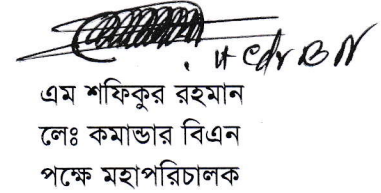 Lt Cdr BN
এম শফিকুর রহমান
লেঃ কমান্ডার বিএন
পক্ষে মহাপরিচালক